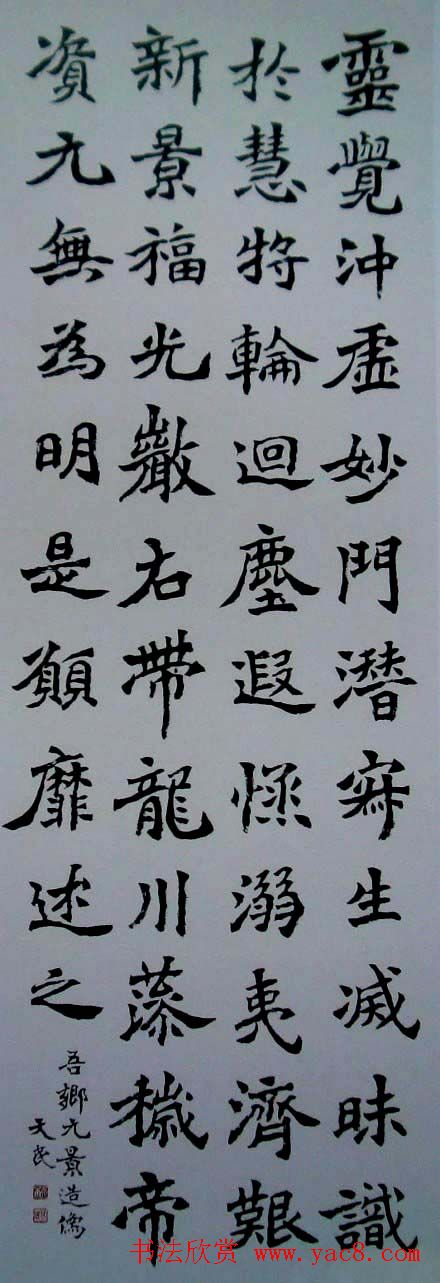 靈覺沖虛妙門潛寂生滅昧識
於慧将輪迴塵遐悠溺夷濟艱
新景福光巖右帶龍川蔭
帝資九無為明是願靡述之
吾鄉元景造像
天民
书法欣赏 www.yac8.com